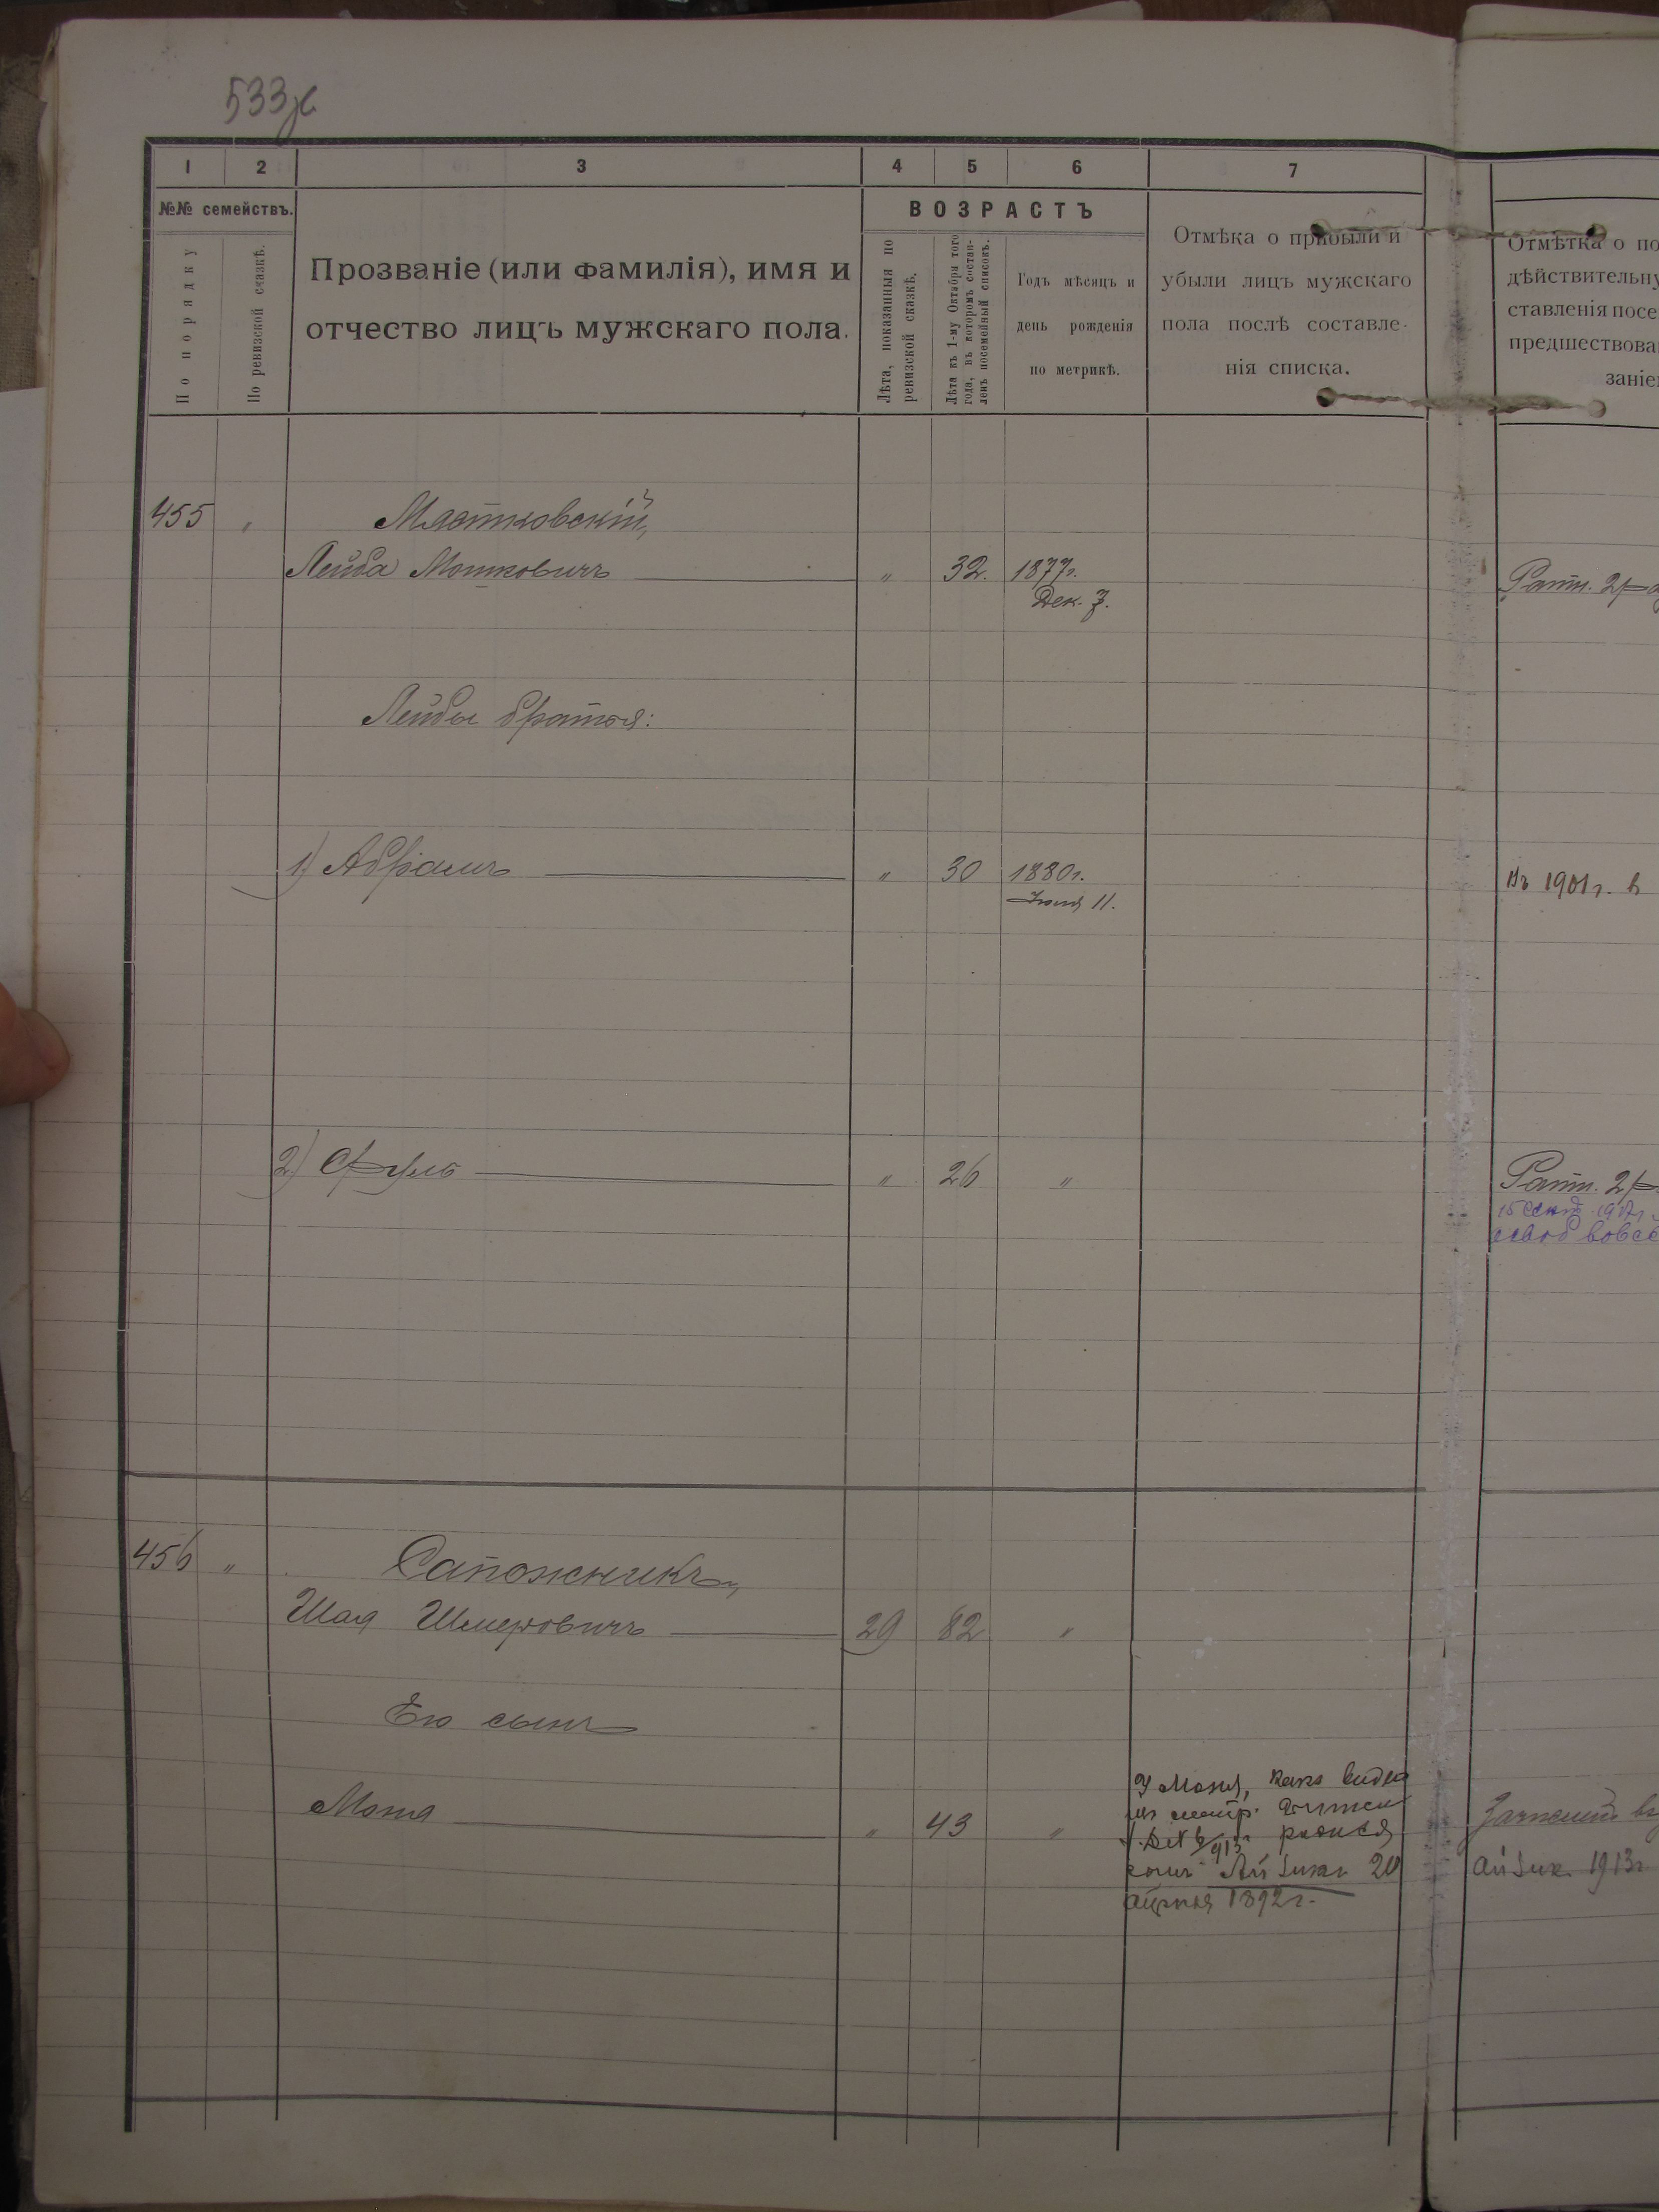 533 ж
1 2 3 4 5 6 7
№№ семействъ.
По порядку
По ревизской сказкѣ.
Прозваніе (или фамилія), имя и
отчество лицъ мужскаго пола.
ВОЗРАСТЪ
Лѣта, показанныя по
ревизской сказкѣ.
Лѣта къ 1-му Октября того
года, въ которомъ состав-
ленъ посемейный списокъ.
Годъ мѣсяцъ и
день рожденія
по метрикѣ.
Отмѣка о прибыли и
убыли лицъ мужскаго
пола послѣ составле-
нія списка.
Отмѣтка о по
дѣйствительну
ставленія посе
предшествова
заніе
455 " Мястковскій,
Лейба Мошковичъ " 32. 1877г.
Дек. 7.
Ратн. 2 р
Лейбы братья:
1) Абрамъ " 30 1880г.
Іюня 11.
Въ 1901г. в
2) Сруль " 26 "
Ратн. 2 р.
15 Сент. 1917г.
освоб вовсе
456 " Сапожникъ,
Шая Шмеровичъ 29 82 "
Его сынъ
Моня " 43 "
У Мони, какъ видно
изъ метр. выписи
1913 родился
сынъ Айзикъ 20
апрѣля 1892г.
Айзик. 1913г